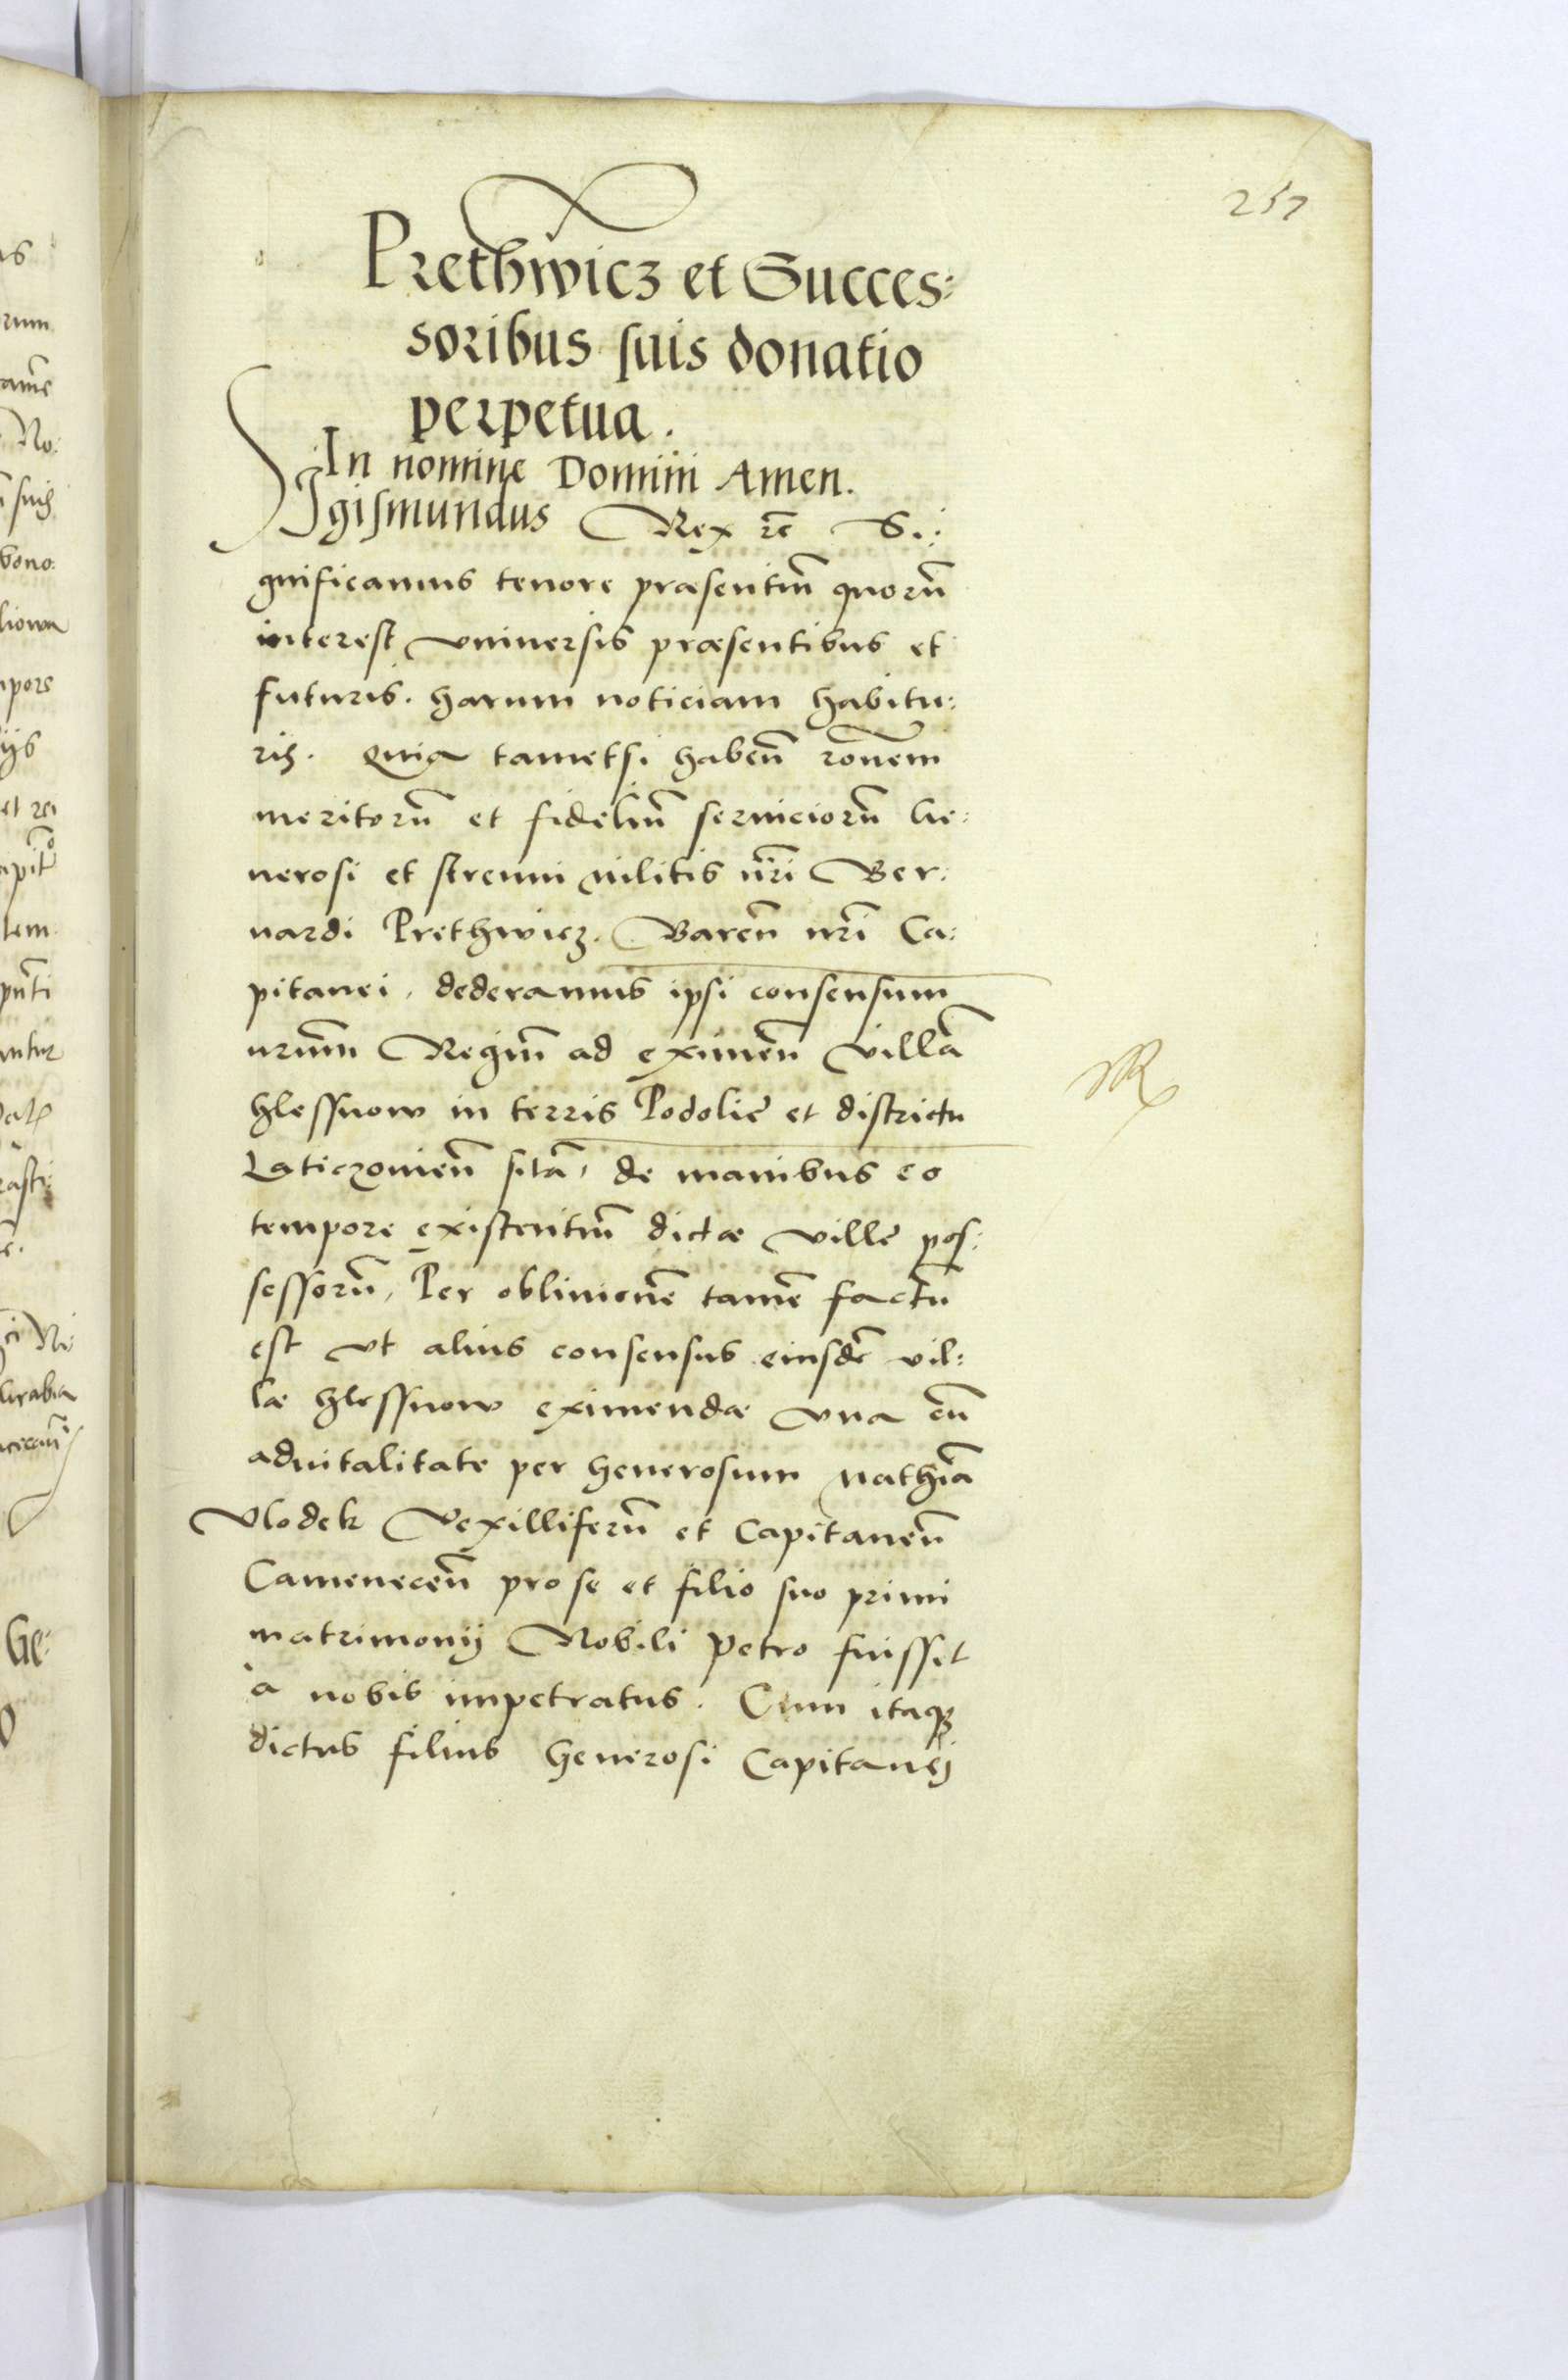 257
Prethwicz et Succes:
soribus suis donatio
perpetua.
In nomine Domini Amen.
Sigismundus Rex rc̄ Si:
gnificamus tenore præsentiū quorū
interest vniuersis præsentibus et
futuris. harum noticiam habitu:
ris. Quia tametsi habeñ roñem
meritorū et fidelū seruiciorū Ge:
nerosi et strenui militis nr̄i Ber:
nardi Prethwicz. Bareñ nr̄i Ca:
pitanei, dederamus ipsi consensum
nrūm Regiū ad eximeñ villā
Hlessnow in terris Podolie et districtu
Laticzovieñ sitā, de manibus eo
tempore existentiū dictæ ville pos:
sessorū, Per obliuionē tamē factū
est vt alius consensus eiusdē vil:
læ Hlessnow eximendæ vna cū
aduitalitate per Generosum Mathiā
Vlodek Vexilliferū et Capitaneū
Cameneceñ pro se et filio suo primi
matrimonij Nobili Petro fuissit
à nobis impetratus. Cum itaq̷
dictus filius Generosi Capitanej